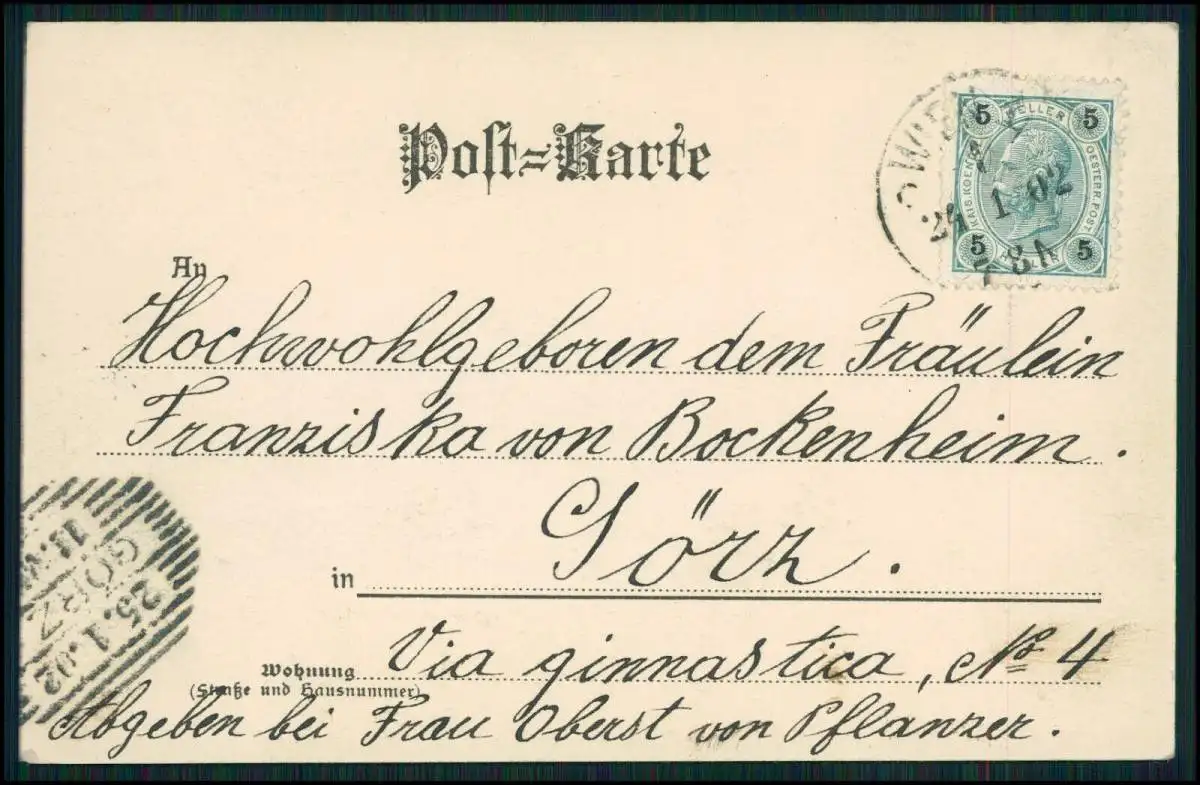 Post=Karte
5 HELLER 5
KAIS. KOENIGL. OESTERR. POST
5 HELLER 5
WIEN
24 1 02
An
Hochwohlgeboren dem Fräulein
Franziska von Bockenheim.
in Görz.
Wohnung Via ginnastica, No 4
(Straße und Hausnummer)
Abgeben bei Frau Oberst von Pflanzer.
GÖRZ
25.1.02
11.V